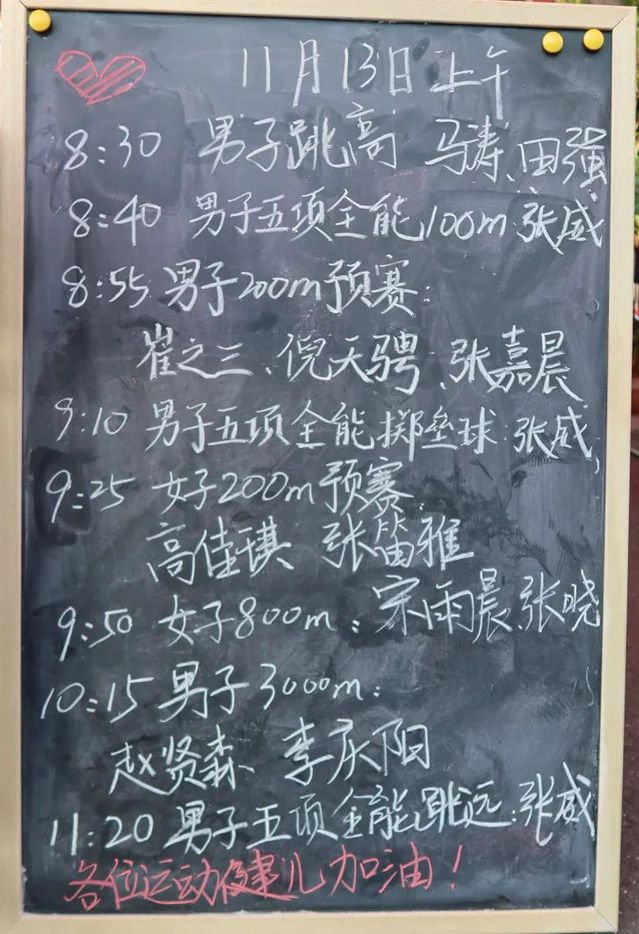 11月13日上午
8:30 男子跳高 马涛、田强
8:40 男子五项全能100m 张威
8:55 男子200m预赛:
崔之三、倪天骋、张嘉晨
9:10 男子五项全能掷垒球:张威
9:25 女子200m预赛
高佳琪 张笛雅
9:50 女子800m:宋雨晨、张晓
10:15 男子3000m:
赵贤森 李庆阳
11:20 男子五项全能跳远:张威
各位运动健儿加油!